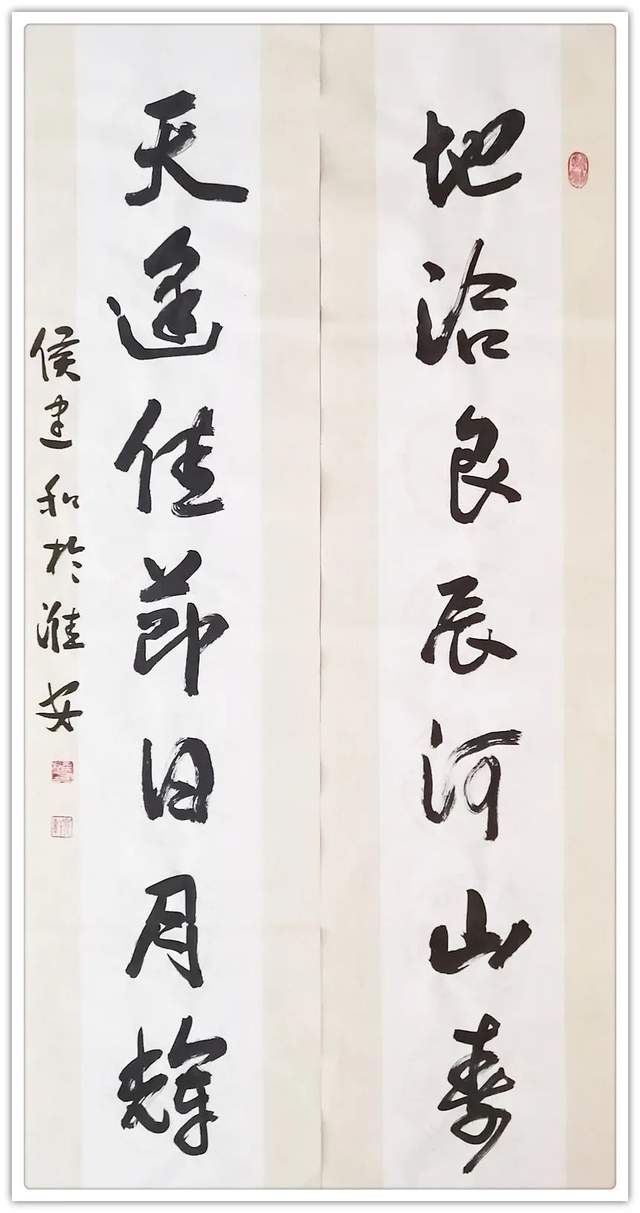 地洽良辰河山壽
天逢佳節日月輝
侯建和於淮安